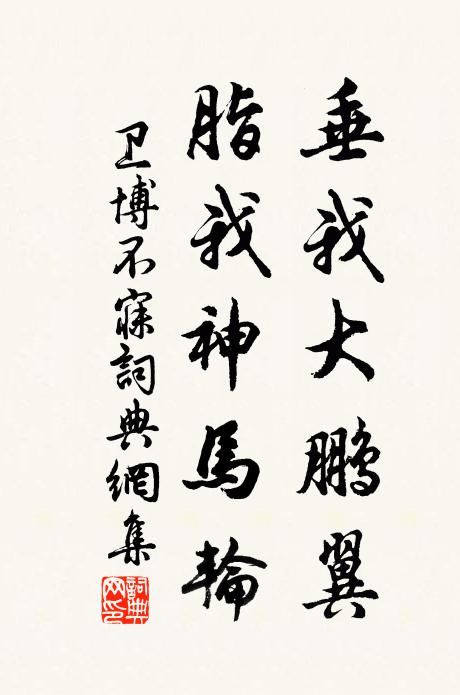 垂我大鹏翼
脂我神馬輪
卫博不寐詞典網集
詞典网印